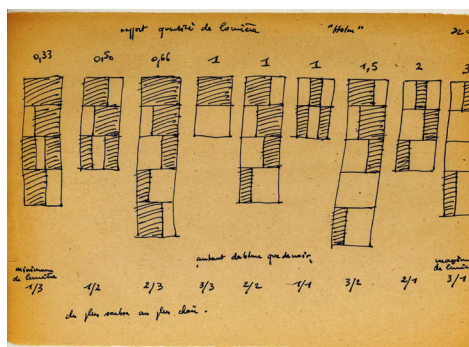 rapport quantité de lumière "Holm" 22
0,33 0,50 0,66 1 1 1 1,5 2 3
autant de blanc que de noir
minimum de lumière maximum de lumière
1/3 1/2 2/3 3/3 2/2 1/1 3/2 2/1 3/1
du plus sombre au plus clair.